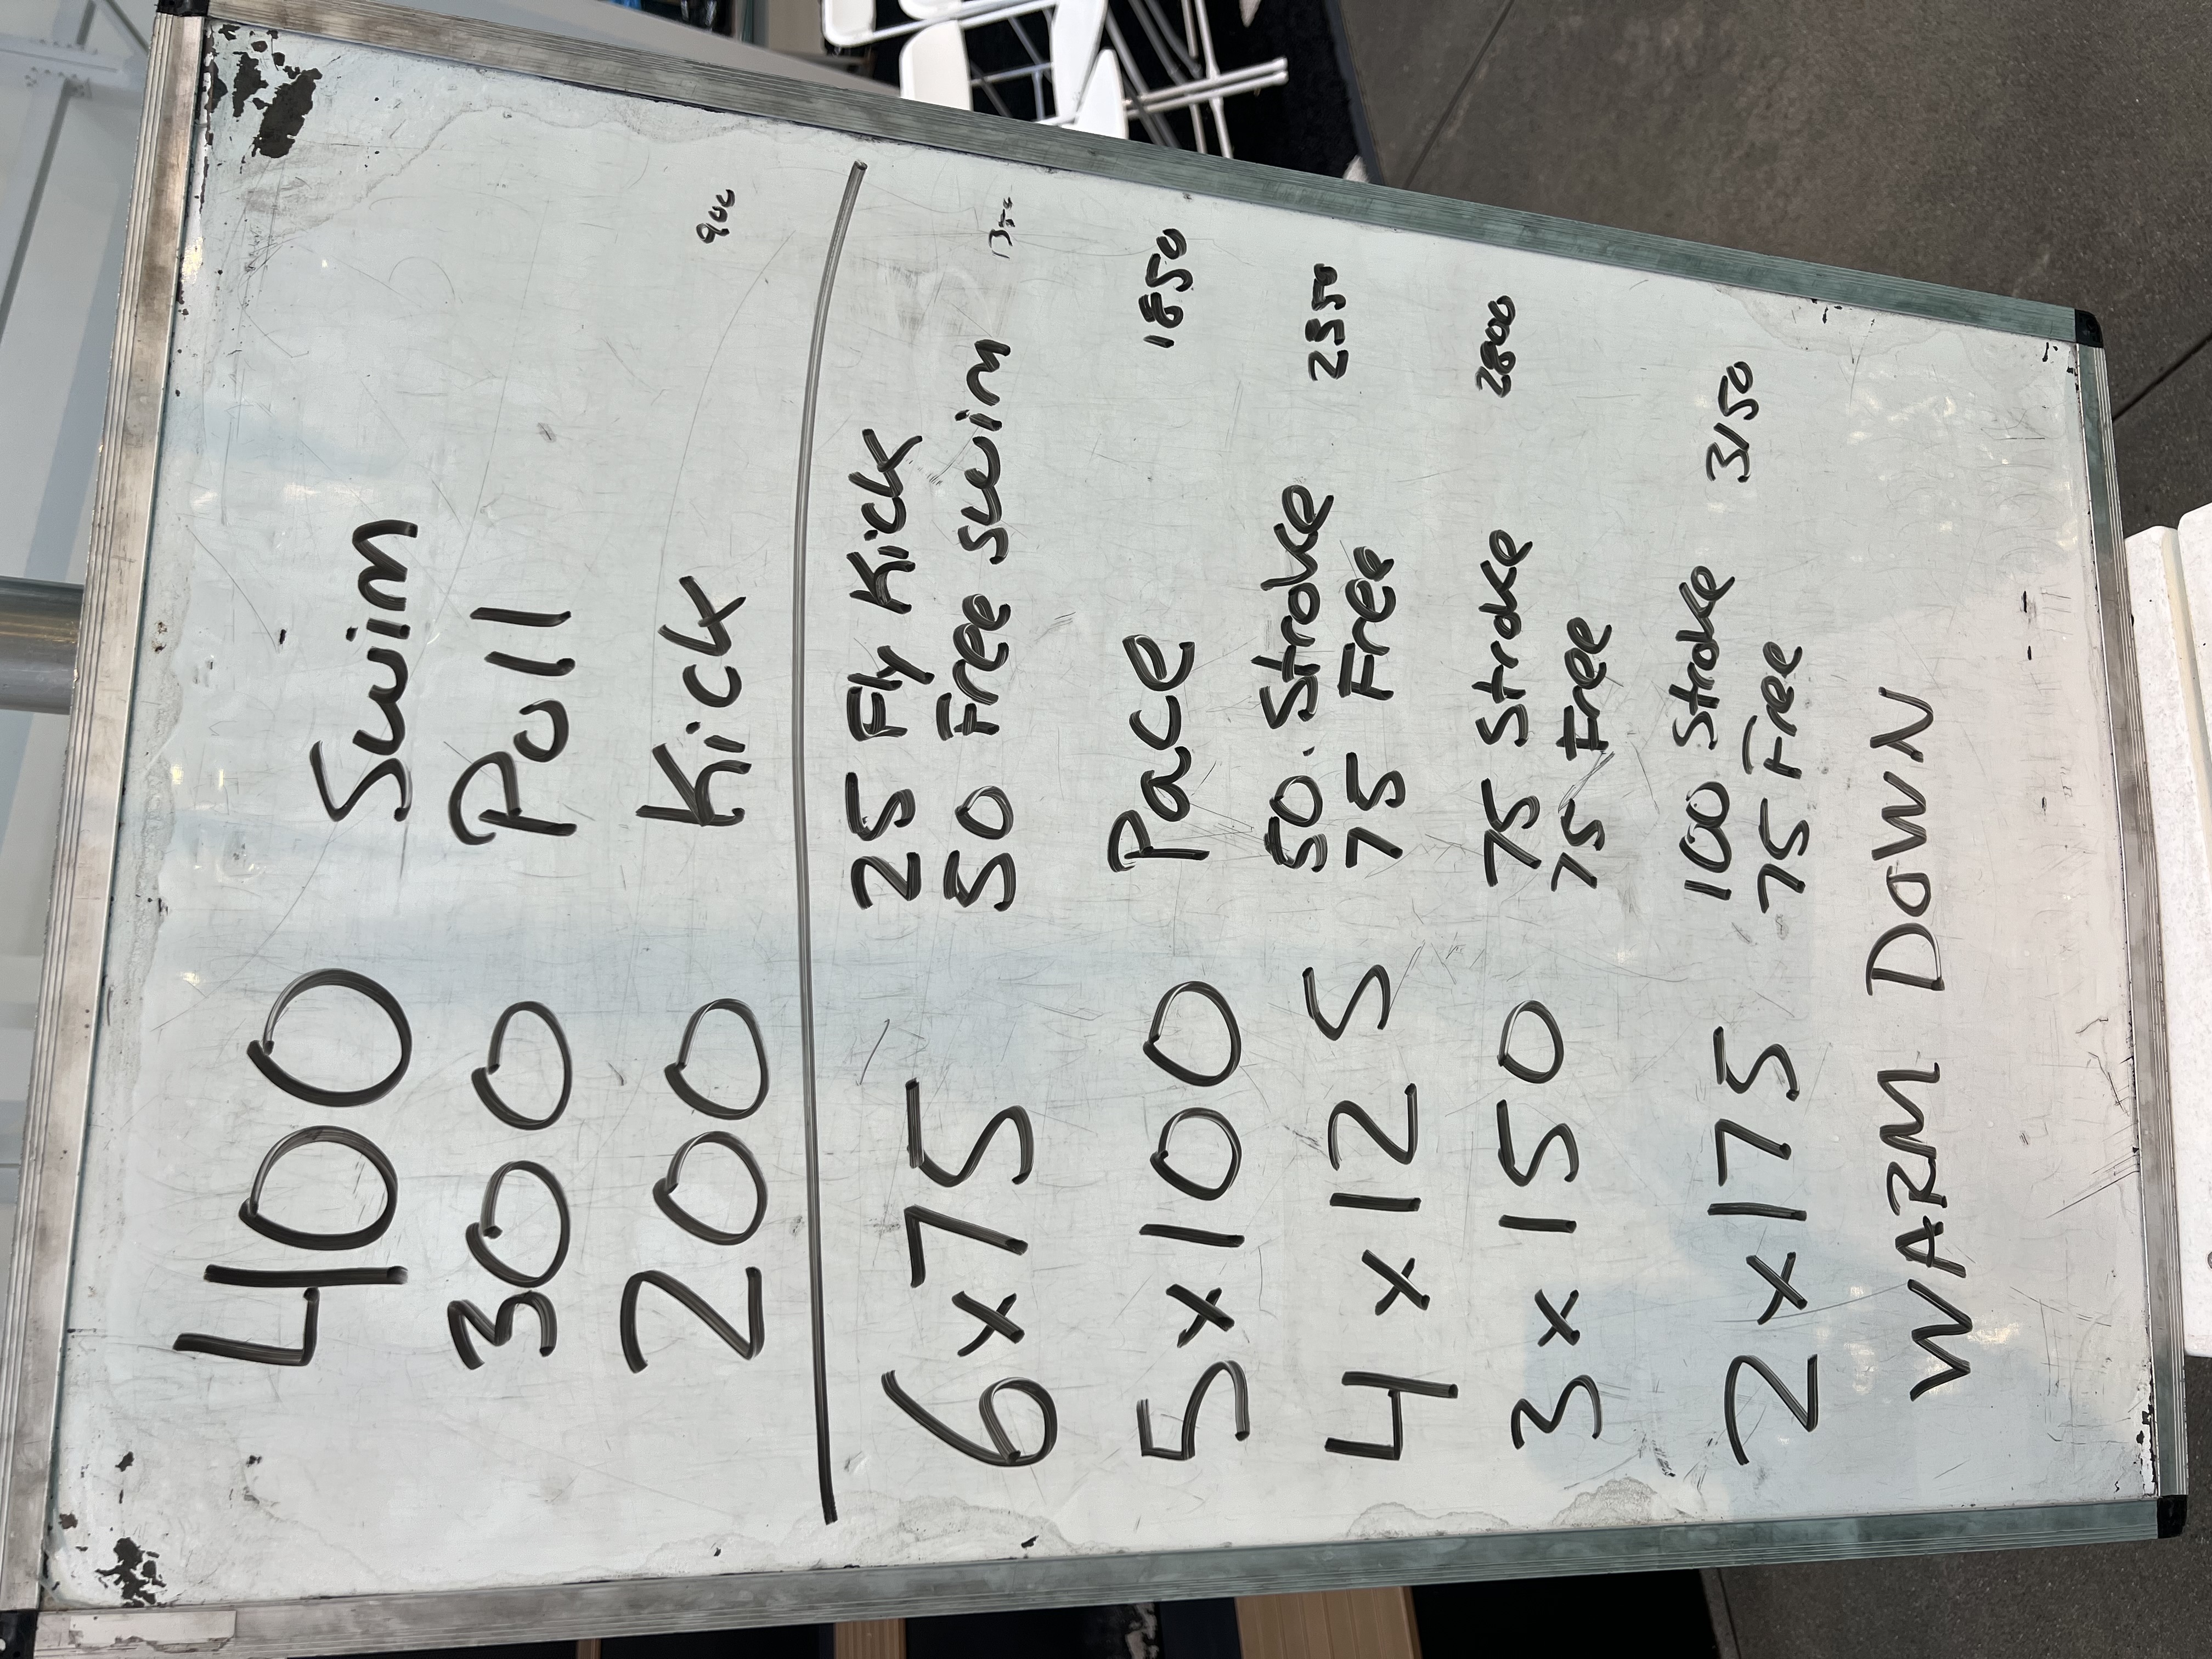 400 Swim
300 Pull
200 Kick 900
6 x 75 25 Fly Kick
50 Free Swim 1350
5 x 100 Pace 1850
4 x 125 50 Stroke 2350
75 Free
3 x 150 75 Stroke 2800
75 Free
2 x 175 100 Stroke 3150
75 Free
WARM DOWN